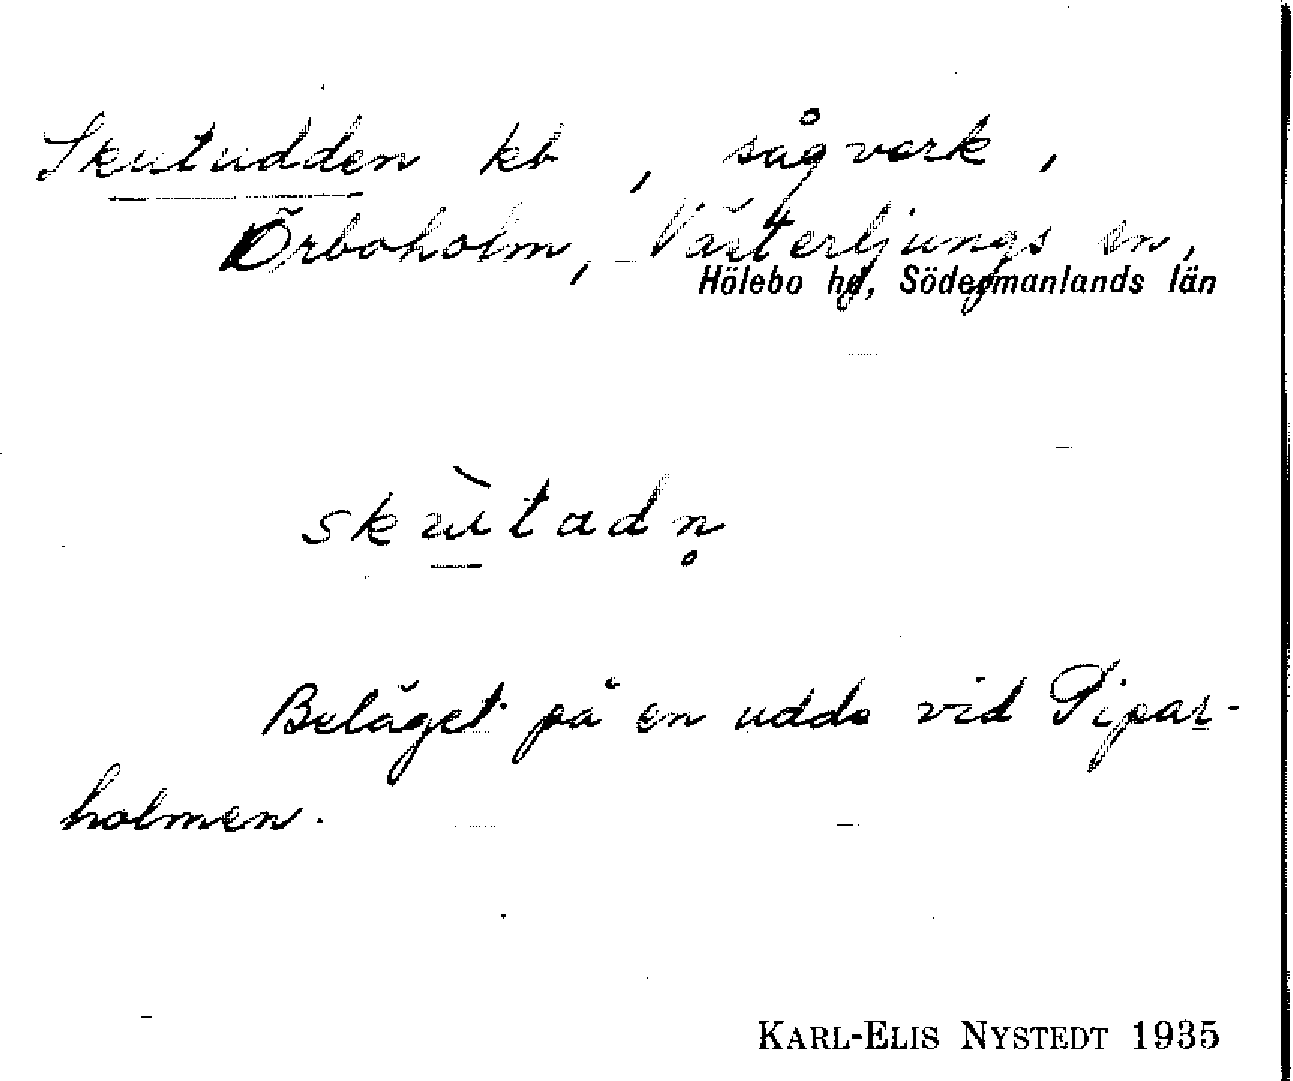 Skutudden kb, sågverk,
Örboholm, Västerljungs sn,
Hölebo hd, Södermanlands län
skùtadn̥
Beläget på en udde vid Pipar-
holmen.
KARL-ELIS NYSTEDT 1935